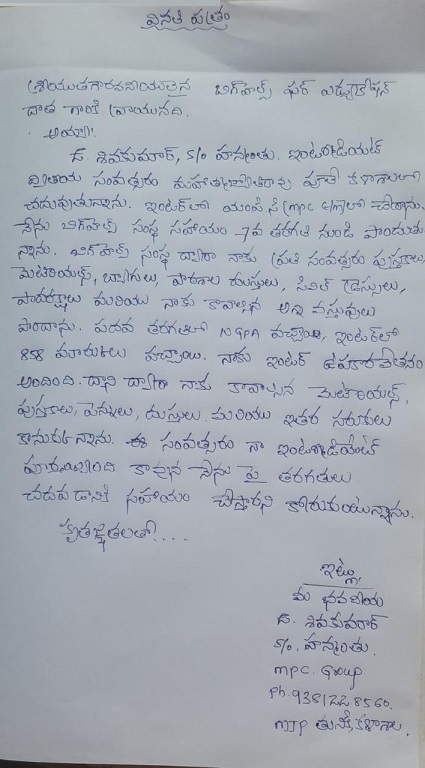 వినతి పత్రం
శ్రీయుతగారవనీయులైన బిగ్‌హెల్ప్ ఫర్ ఎడ్యుకేషన్
దాత గారికి వ్రాయునది.
అయ్యా,
డ. శివకుమార్, S/o హన్మంతు. ఇంటర్మీడియట్
ద్వితీయ సంవత్సరం మహాత్మాజ్యోతిరావు పూలే కళాశాలలో
చదువుతున్నాను. ఇంటర్‌లో యంపి.సి (mpc లో) చేరాను.
నేను బిగ్‌హెల్ప్ సంస్థ సహాయం 7వ తరగతి నుండి పొందుతు
న్నాను. బిగ్‌హెల్ప్ సంస్థ ద్వారా నాకు ప్రతి సంవత్సరం పుస్తకాలు,
మెటీరియల్స్, బ్యాగులు, పాఠశాల దుస్తులు, సివిల్ డ్రెస్సులు,
పాదరక్షాలు మరియు నాకు కావాల్సిన అన్ని వస్తువులు
పొందాను. పదవ తరగతిలో GPA వచ్చాయి, ఇంటర్‌లో
858 మారుకులు వచ్చాయి. నాకు ఇంటర్ ఉపకారవేతనం
అందింది. దాని ద్వారా నాకు కావాల్సిన మెటీరియల్స్,
పుస్తకాలు, పెన్నులు, దుస్తులు మరియు ఇతర సరుకులు
కొనుకున్నాను. ఈ సంవత్సరం నా ఇంటర్మీడియేట్
పూర్తయ్యింది కావున నేను పై తరగతులు
చదవడానికి సహాయం చేస్తారని కోరుకుంటున్నాను.
కృతజ్ఞతలతో....
ఇట్లు,
మీ భవదీయ
డ. శివకుమార్
S/o. హన్మంతు.
mpc. Group
Ph. 9381228560.
MJP కళాశాల.